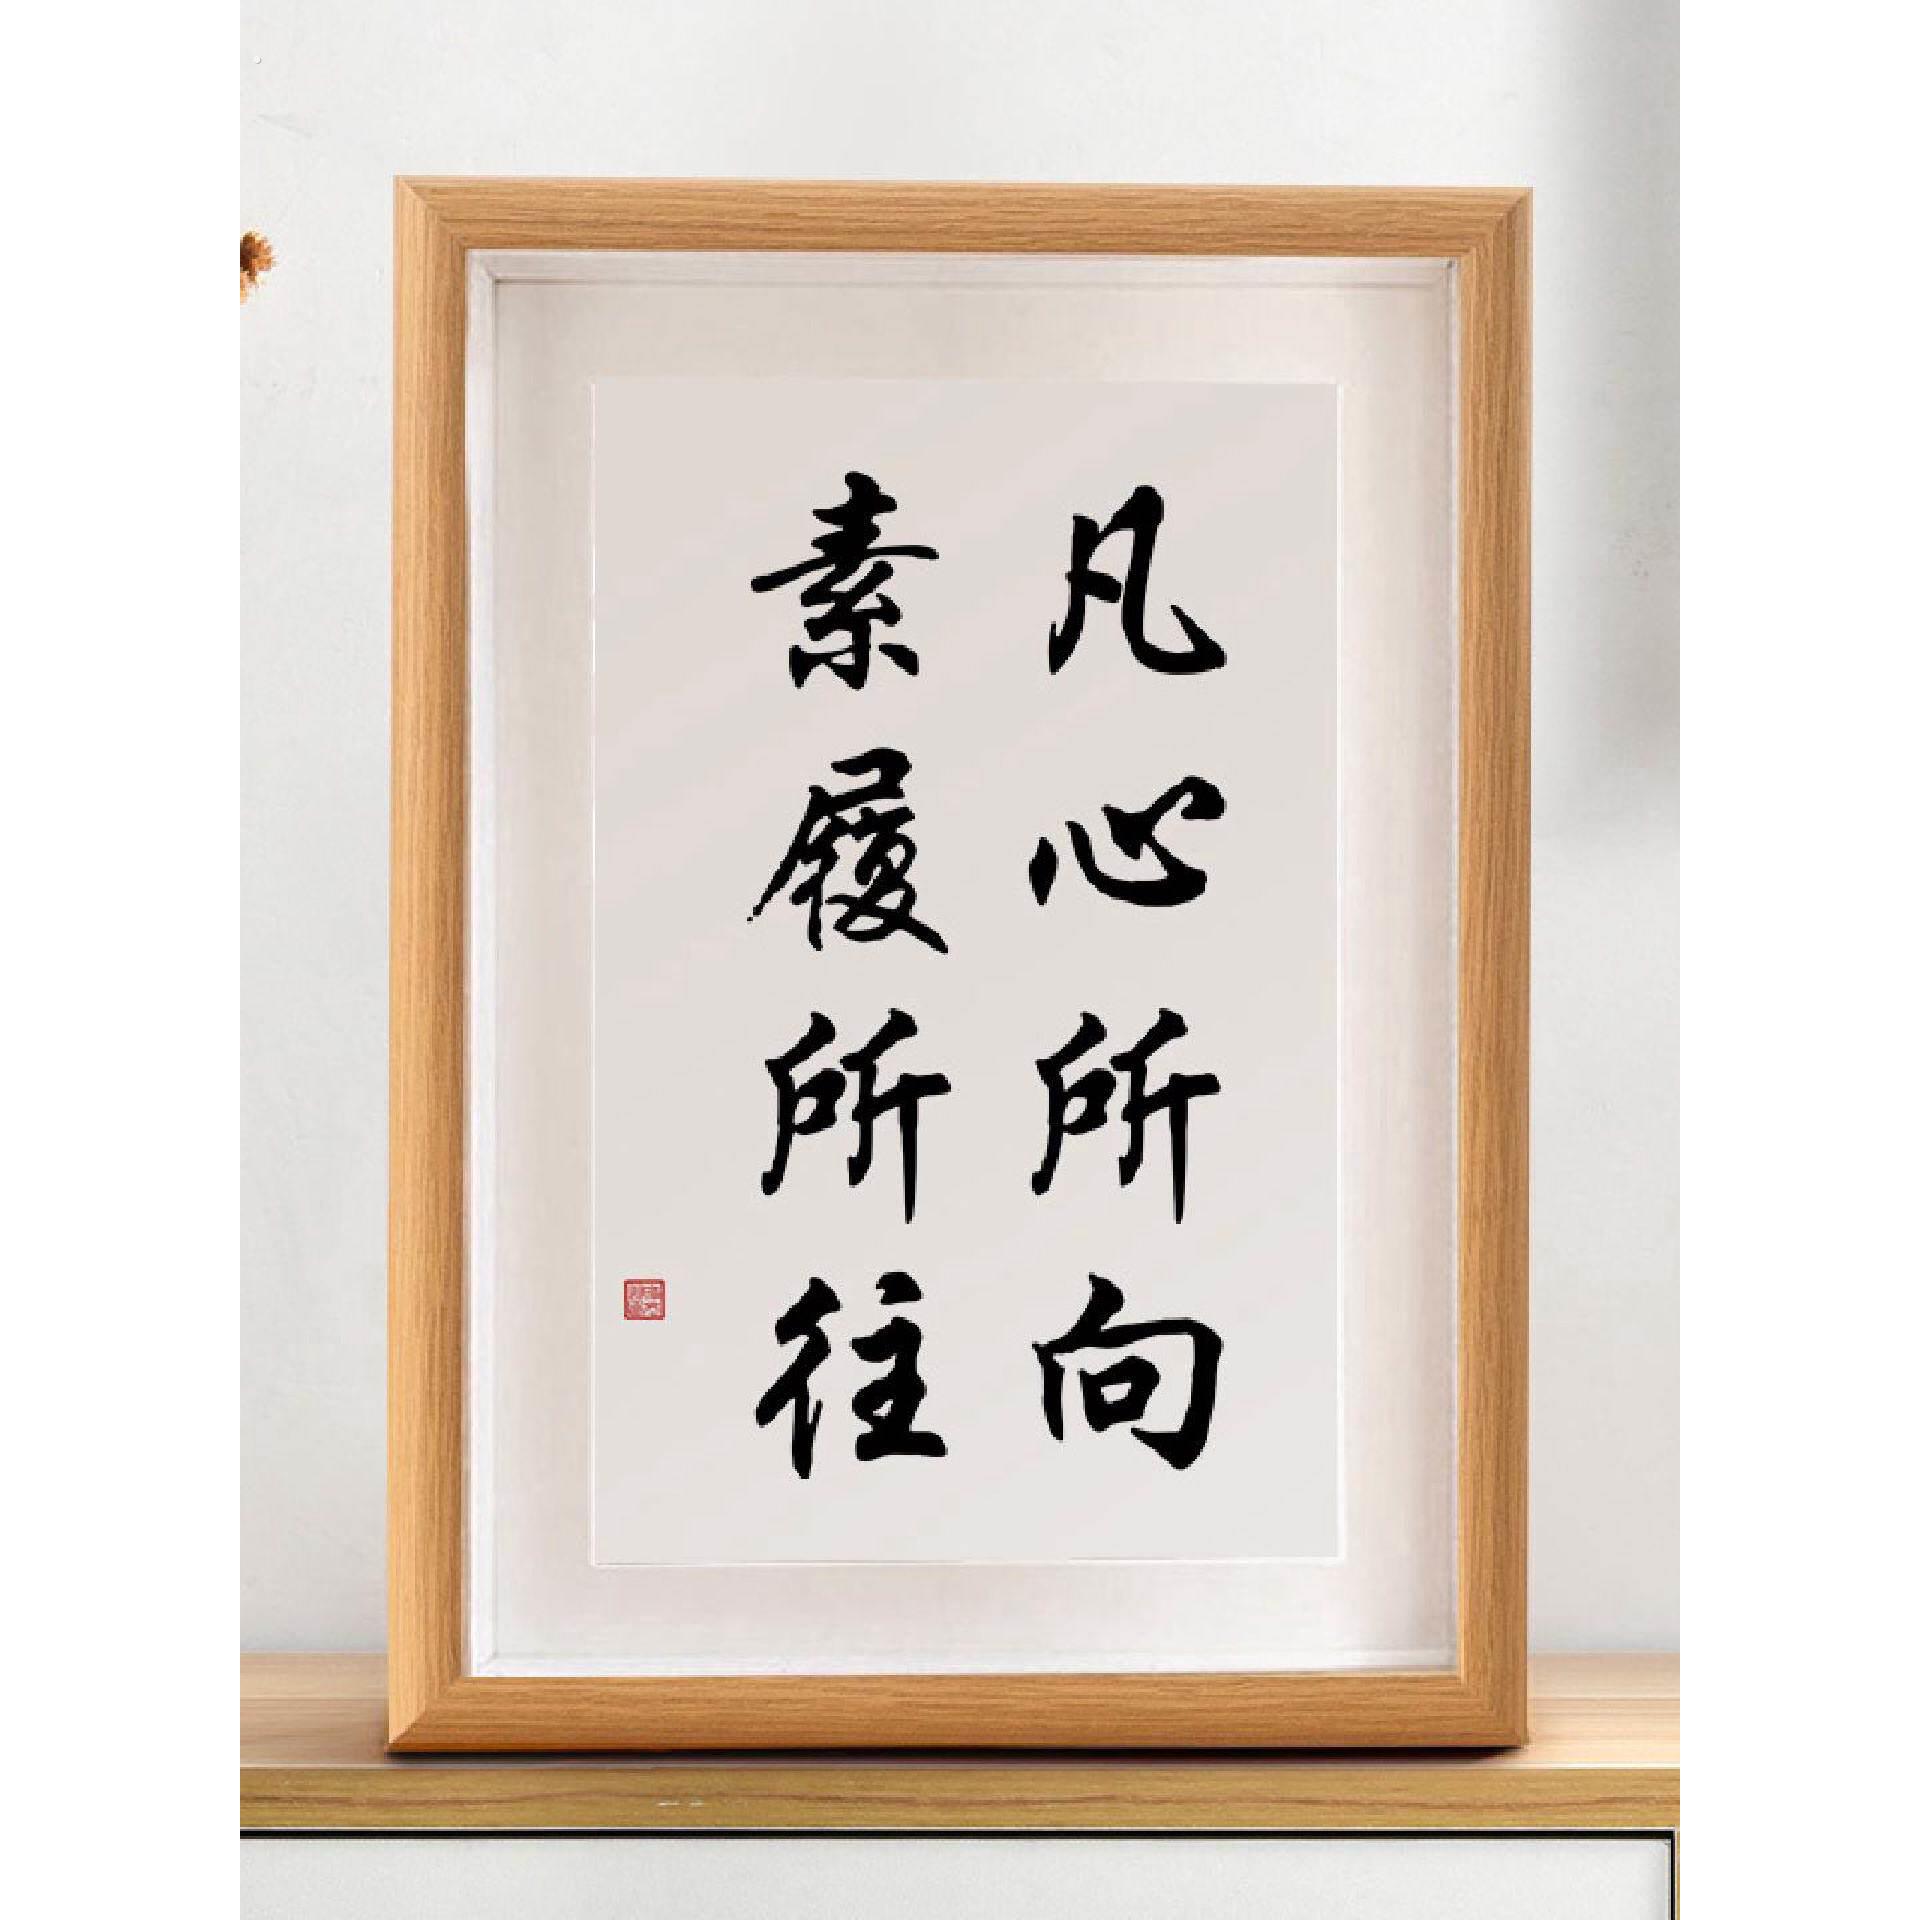 凡心所向
素履所往